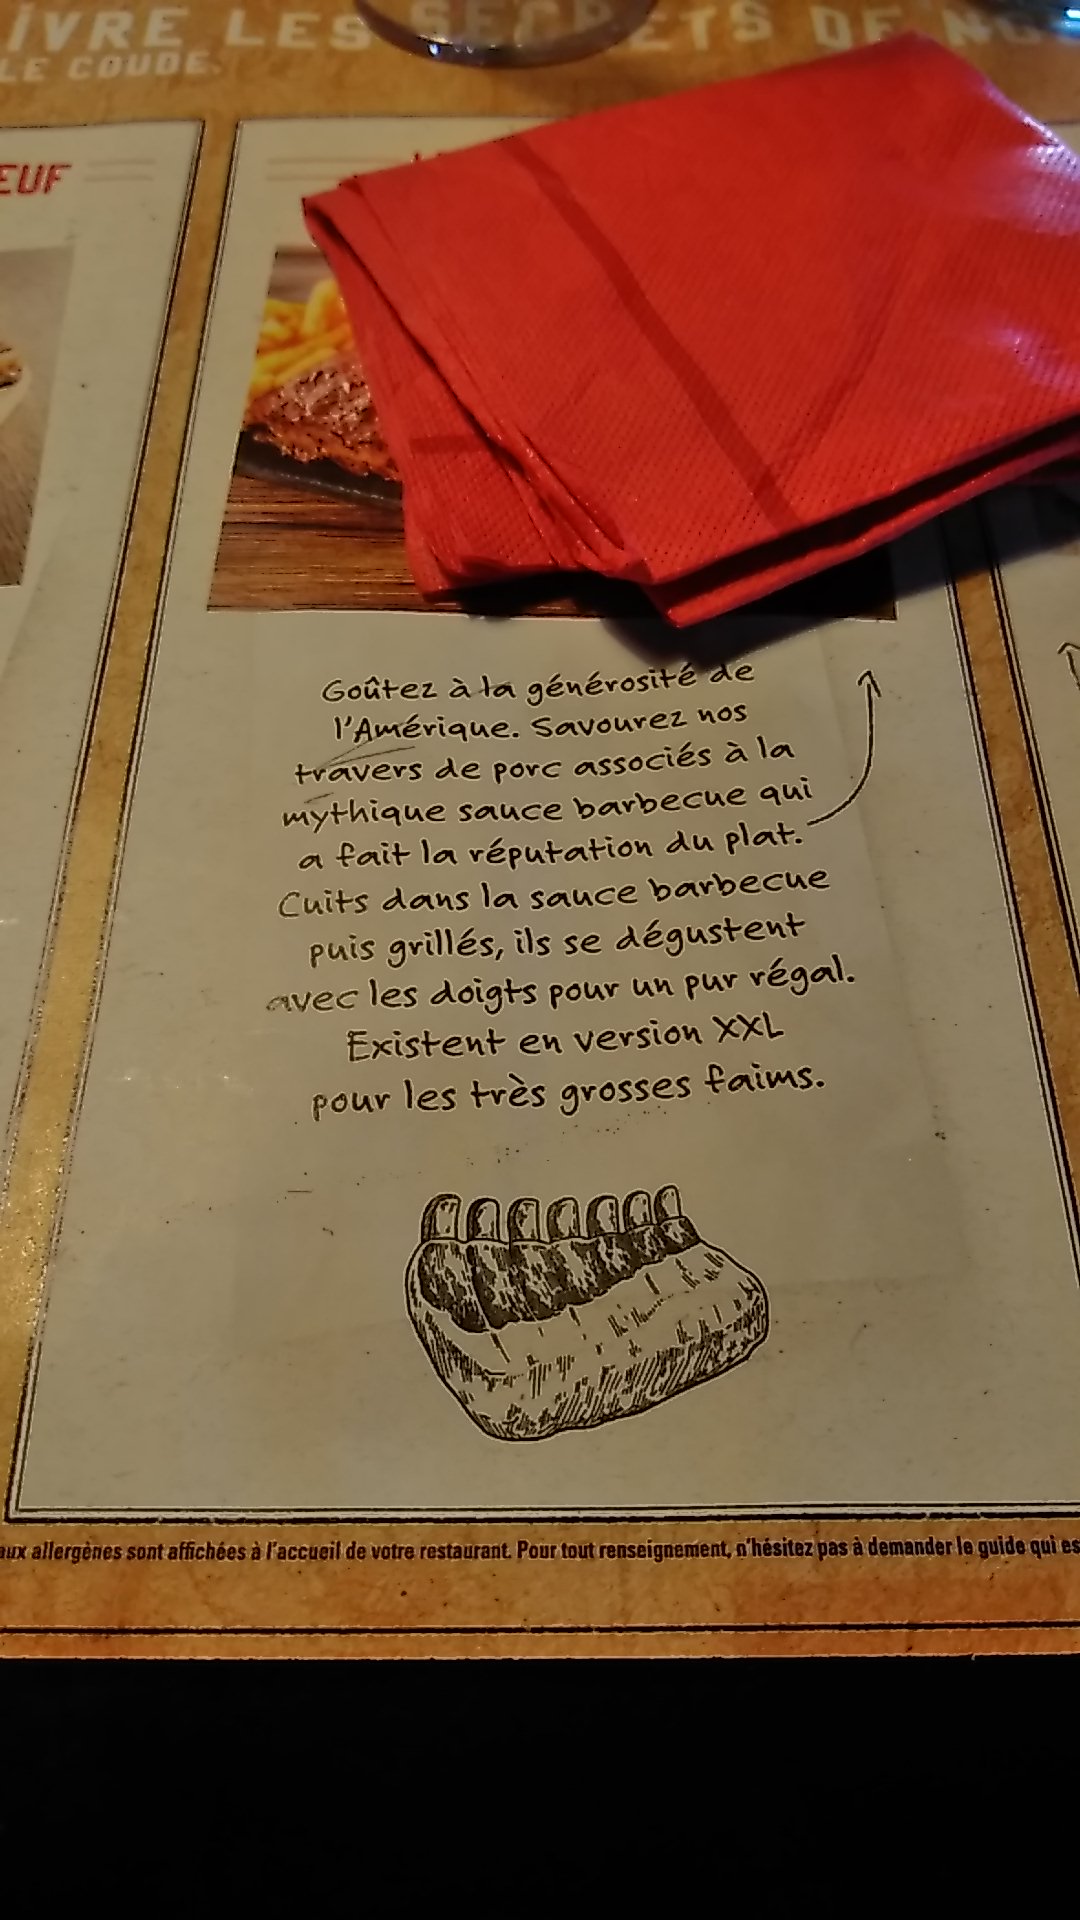 LES SECRETS DE
LE COUDE.
Goûtez à la générosité de
l'Amérique. Savourez nos
travers de porc associés à la
mythique sauce barbecue qui
a fait la réputation du plat.
Cuits dans la sauce barbecue
puis grillés, ils se dégustent
avec les doigts pour un pur régal.
Existent en version XXL
pour les très grosses faims.
aux allergènes sont affichées à l'accueil de votre restaurant. Pour tout renseignement, n'hésitez pas à demander le guide qui